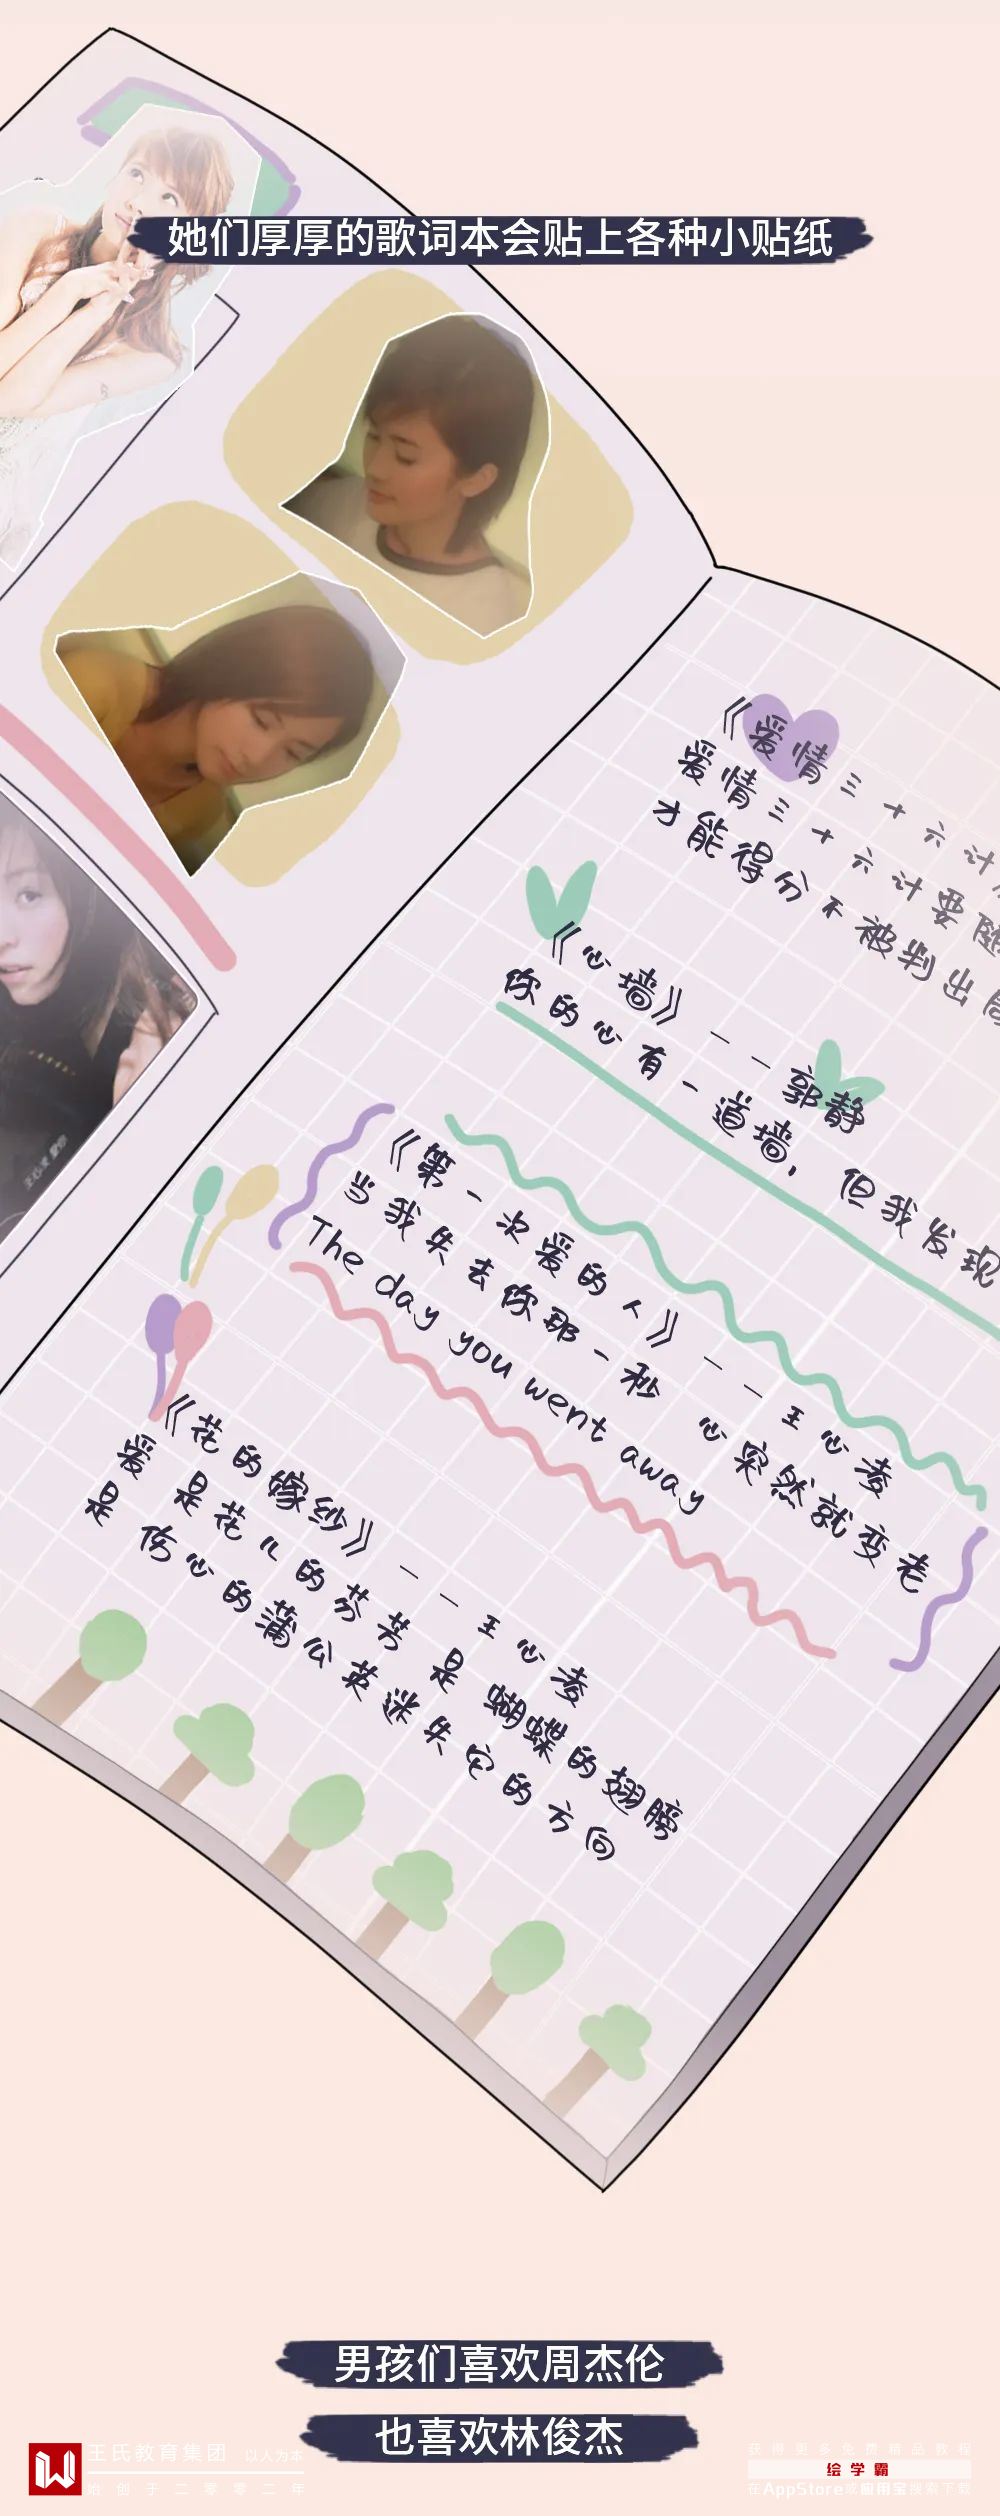 她们厚厚的歌词本会贴上各种小贴纸
《爱情三十六计
爱情三十六计要随
才能得分不被判出局
《心墙》——郭静
你的心有一道墙，但我发现
《第一次爱的人》——王心凌
当我失去你那一秒 心突然就变老
The day you went away
《花的嫁纱》——王心凌
爱 是花儿的芬芳 是 蝴蝶的翅膀
是 伤心的蒲公英迷失它的方向
男孩们喜欢周杰伦
也喜欢林俊杰
王氏教育集团 以人为本
始创于二零零二年
获得更多免费精品教程
绘学霸
在AppStore或应用宝搜索下载